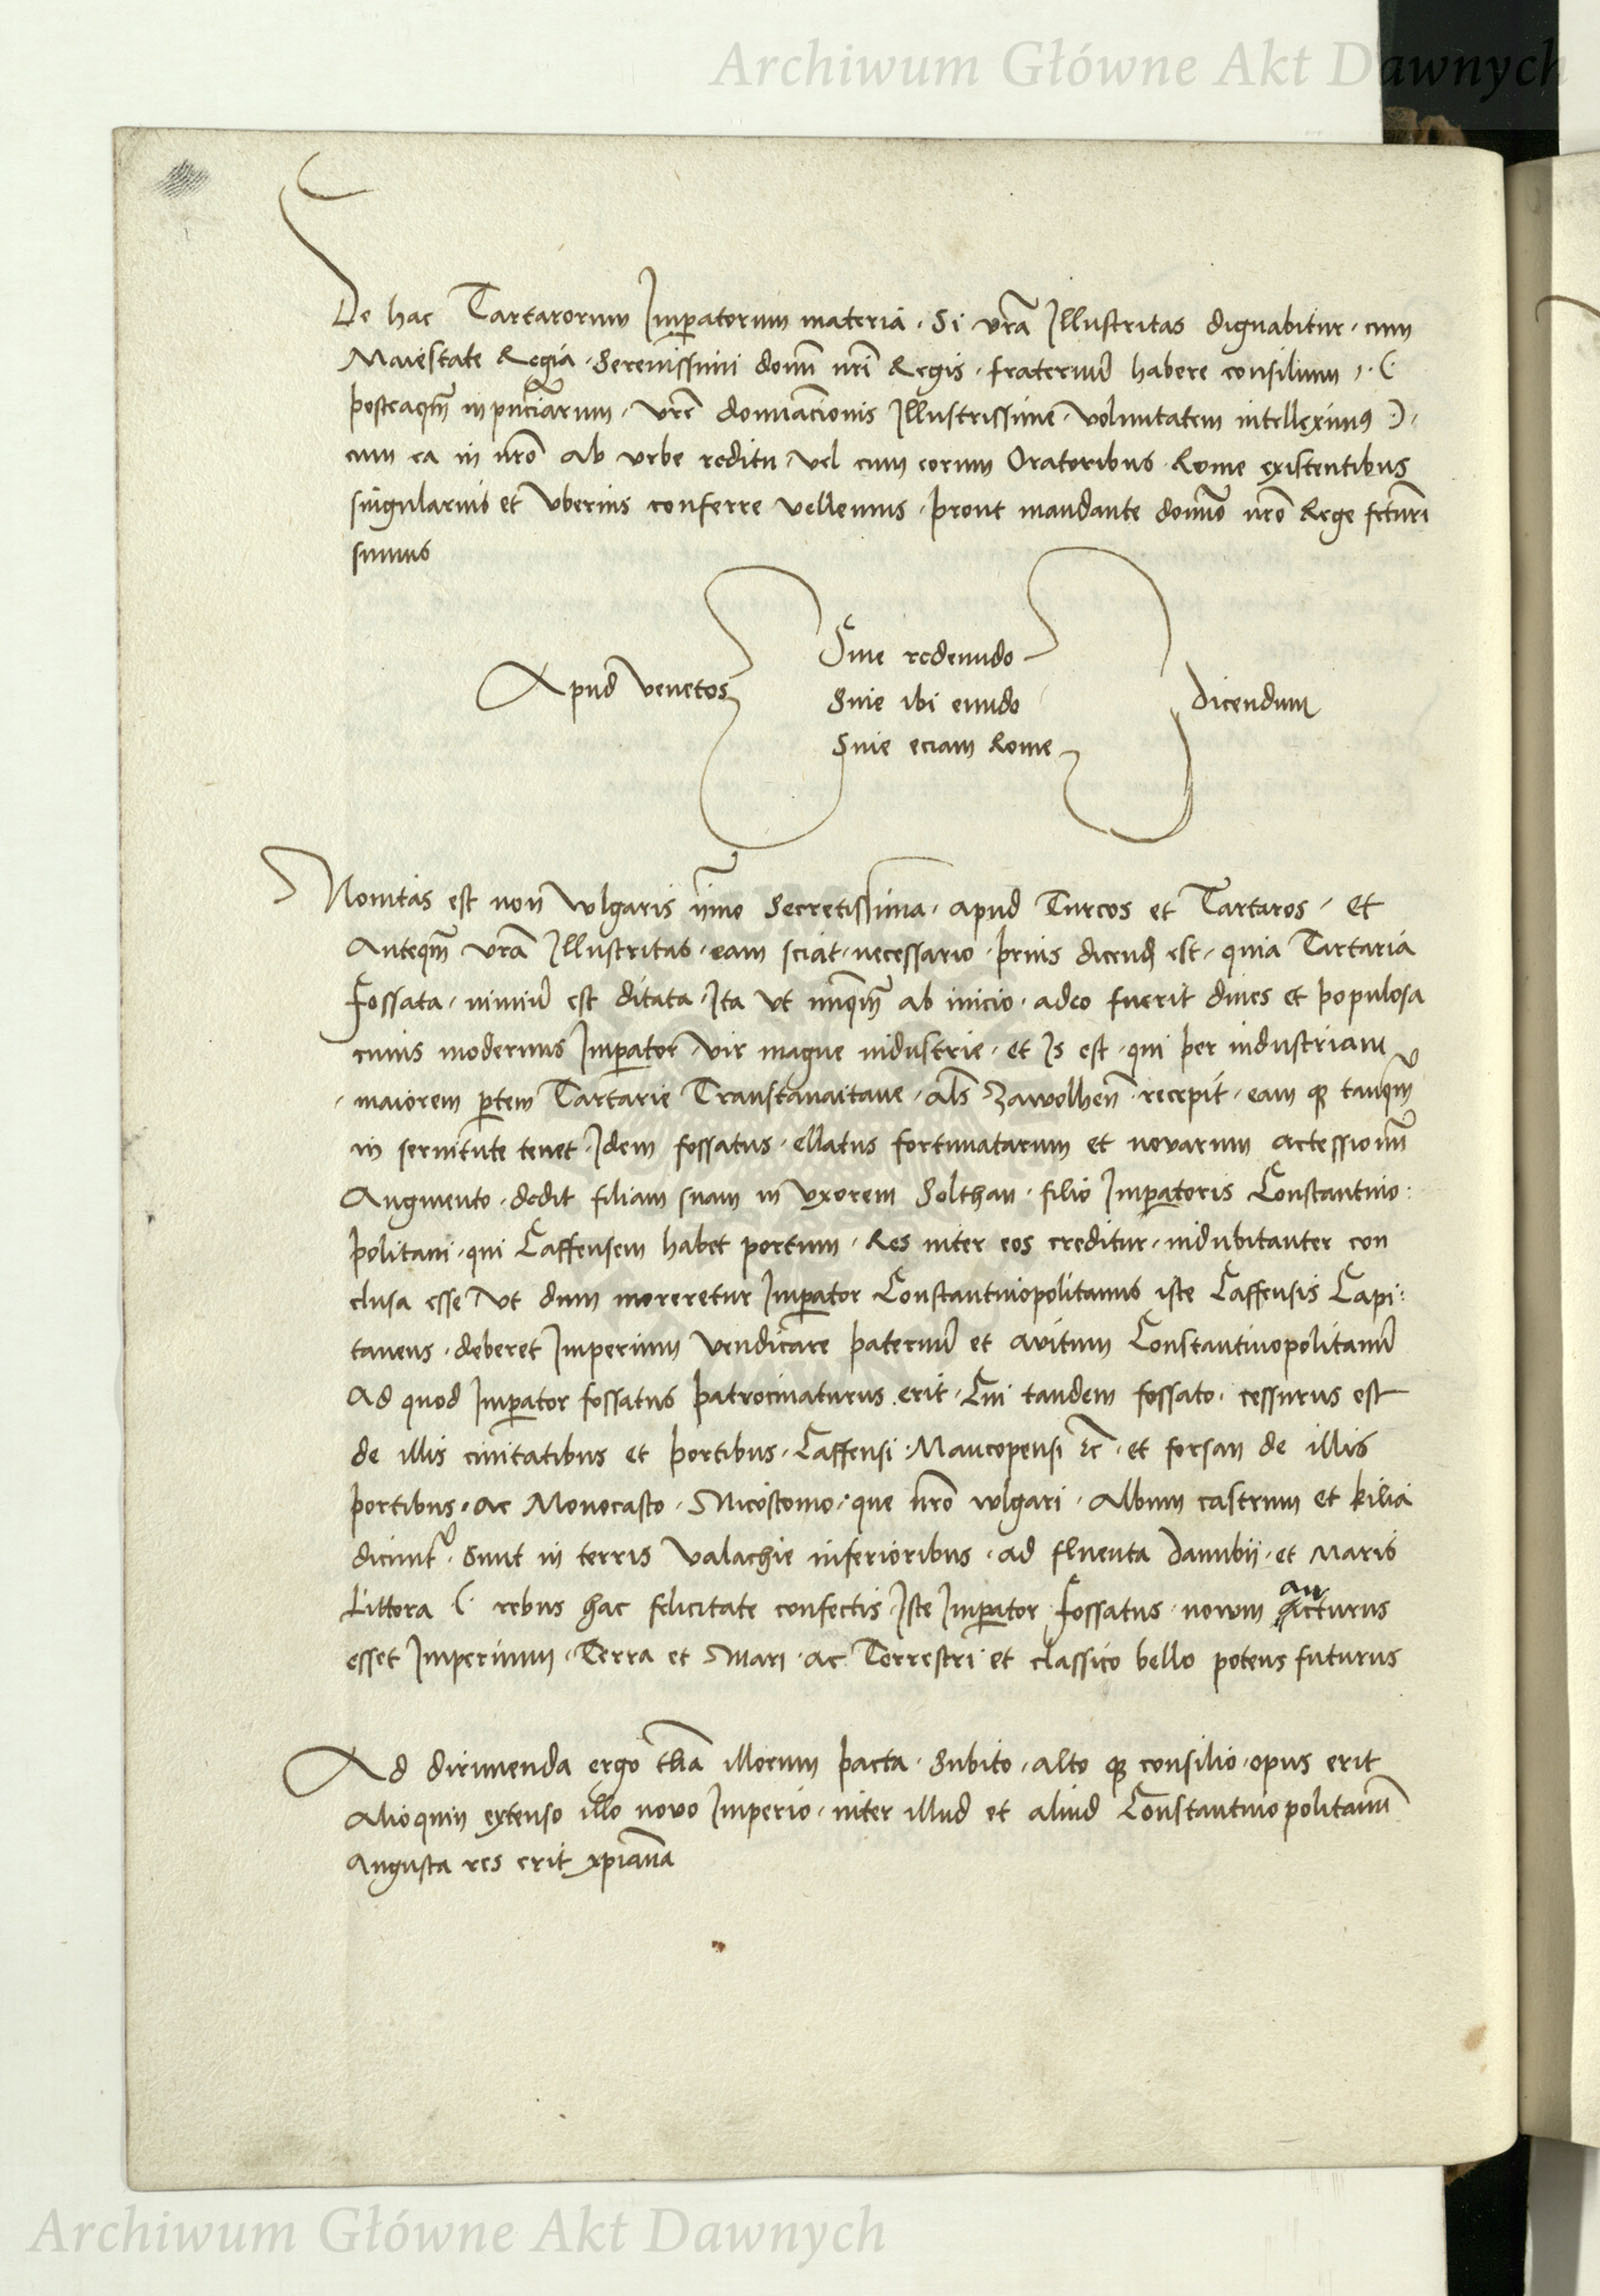 Archiwum Główne Akt Dawnych
De hac Tartarorum Imperatorum materia · Si vr̄a Illustritas dignabitur · cum
Maiestate Regia · Serenissimi domī nr̄i Regis · fraternū habere consilium · (·
posteaqm̄ inpn̄ciarum · vr̄e domīacionis Illustrissime · voluntatem intelleximus ·) ·
cum ea in nr̄o ab vrbe reditu · vel cum eorum Oratoribus Rome existentibus
singularius et vberius conferre vellemus · prout mandante domīo nr̄o Rege fcturi
sumus
Apud venetos
Siue redeundo
Siue ibi eundo
Siue eciam Rome
dicendum
Nouitas est non wlgaris ȳmo Secretissima · apud Turcos et Tartaros · Et
Anteqm̄ vr̄a Illustritas · eam sciat · necessario · prius dicend est · quia Tartaria
Fossata · nimiū est ditata · Ita vt nūqm̄ ab inicio · adeo fuerit diues et populosa
cuius modernus Imperator · vir magne industrie · et Is est · qui per industriam
· maiorem ptem Tartarie Transtanaitane · als Zawolhen̄ · recepit · eam qz tanqm̄
in seruitute tenet · Idem fossatus · ellatus fortunatarum et novarum accessionū
Augmento · dedit filiam suam in vxorem Solthan · filio Imperatoris Constantino:
politani · qui Caffensem habet portum · Res inter eos creditur · indubitanter con
clusa esse Vt dum moreretur Imperator Constantinopolitanus iste Caffensis Capi:
taneus · deberet Imperium vendicare paternū et avitum Constantinopolitanū
Ad quod Imperator fossatus patrocinaturus erit · Cui tandem fossato · cessurus est
de illis ciuitatibus et portibus · Caffensi · Mancopensi &c̄ · et forsan de illis
portibus · ac Monocasto · Nicostomo · que nr̄o wlgari · Album castrum et kilia
dicunt̄ · Sunt in terris Valachie inferioribus · ad fluenta Danubij · et Maris
Littora (· rebus hac felicitate confectis · Iste Imperator Fossatus · nowm aucturus
esset Imperium · Terra et Mari · ac Terrestri et classico bello potens futurus
Ad dirimenda ergo th̄a illorum pacta · Subito · alto qz consilio · opus erit
Alioquin extenso illo novo Imperio · inter illud et aliud Constantinopolitanū
Angusta res erit xpiana
Archiwum Główne Akt Dawnych